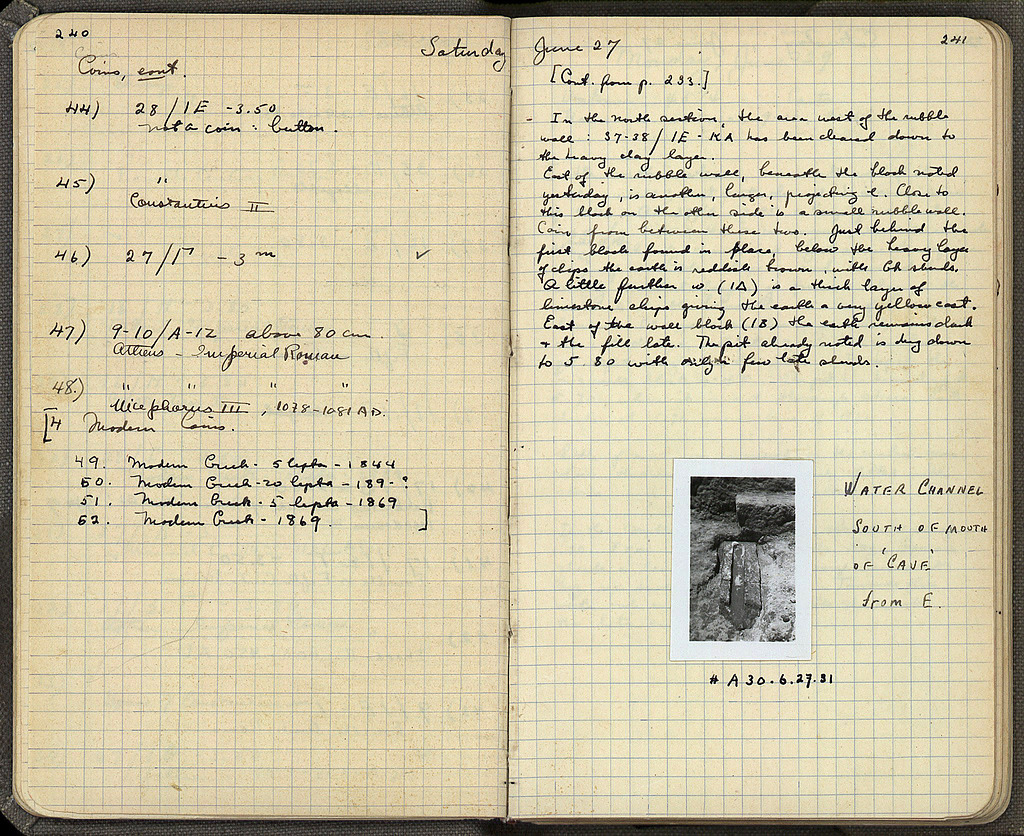 240
Coins, cont.
Saturday
44) 28/1E -3.50
not a coin : button.
45) "
Constantius II
46) 27/1Γ - 3 m ✓
47) 9-10/A-IZ above 80 cm.
Athens - Imperial Roman
48.) " " " "
Nicephorus III, 1078-1081 AD.
[4 Modern Coins.
49. Modern Greek - 5 lepta - 1844
50. Modern Greek - 20 lepta - 189-?
51. Modern Greek - 5 lepta - 1869
52. Modern Greek - 1869. ]
June 27
241
[Cont. from p. 233.]
- In the north section, the area west of the rubble
wall : 37-38/1E - KA has been cleared down to
the heavy clay layer.
East of the rubble wall, beneath the block noted
yesterday, is another, larger, projecting e. Close to
this block on the other side is a small rubble wall.
Coin from between these two. Just behind the
first block found in place, below the heavy layer
of chips the earth is reddish brown, with Gk sherds.
A little further w (1Δ) is a thick layer of
limestone chips giving the earth a very yellow cast.
East of the wall block (1B) the earth remains dark
+ the fill late. The pit already noted is dug down
to 5.80 with only a few late sherds.
WATER CHANNEL
SOUTH OF MOUTH
OF 'CAVE'
from E.
# A 30.6.27.31